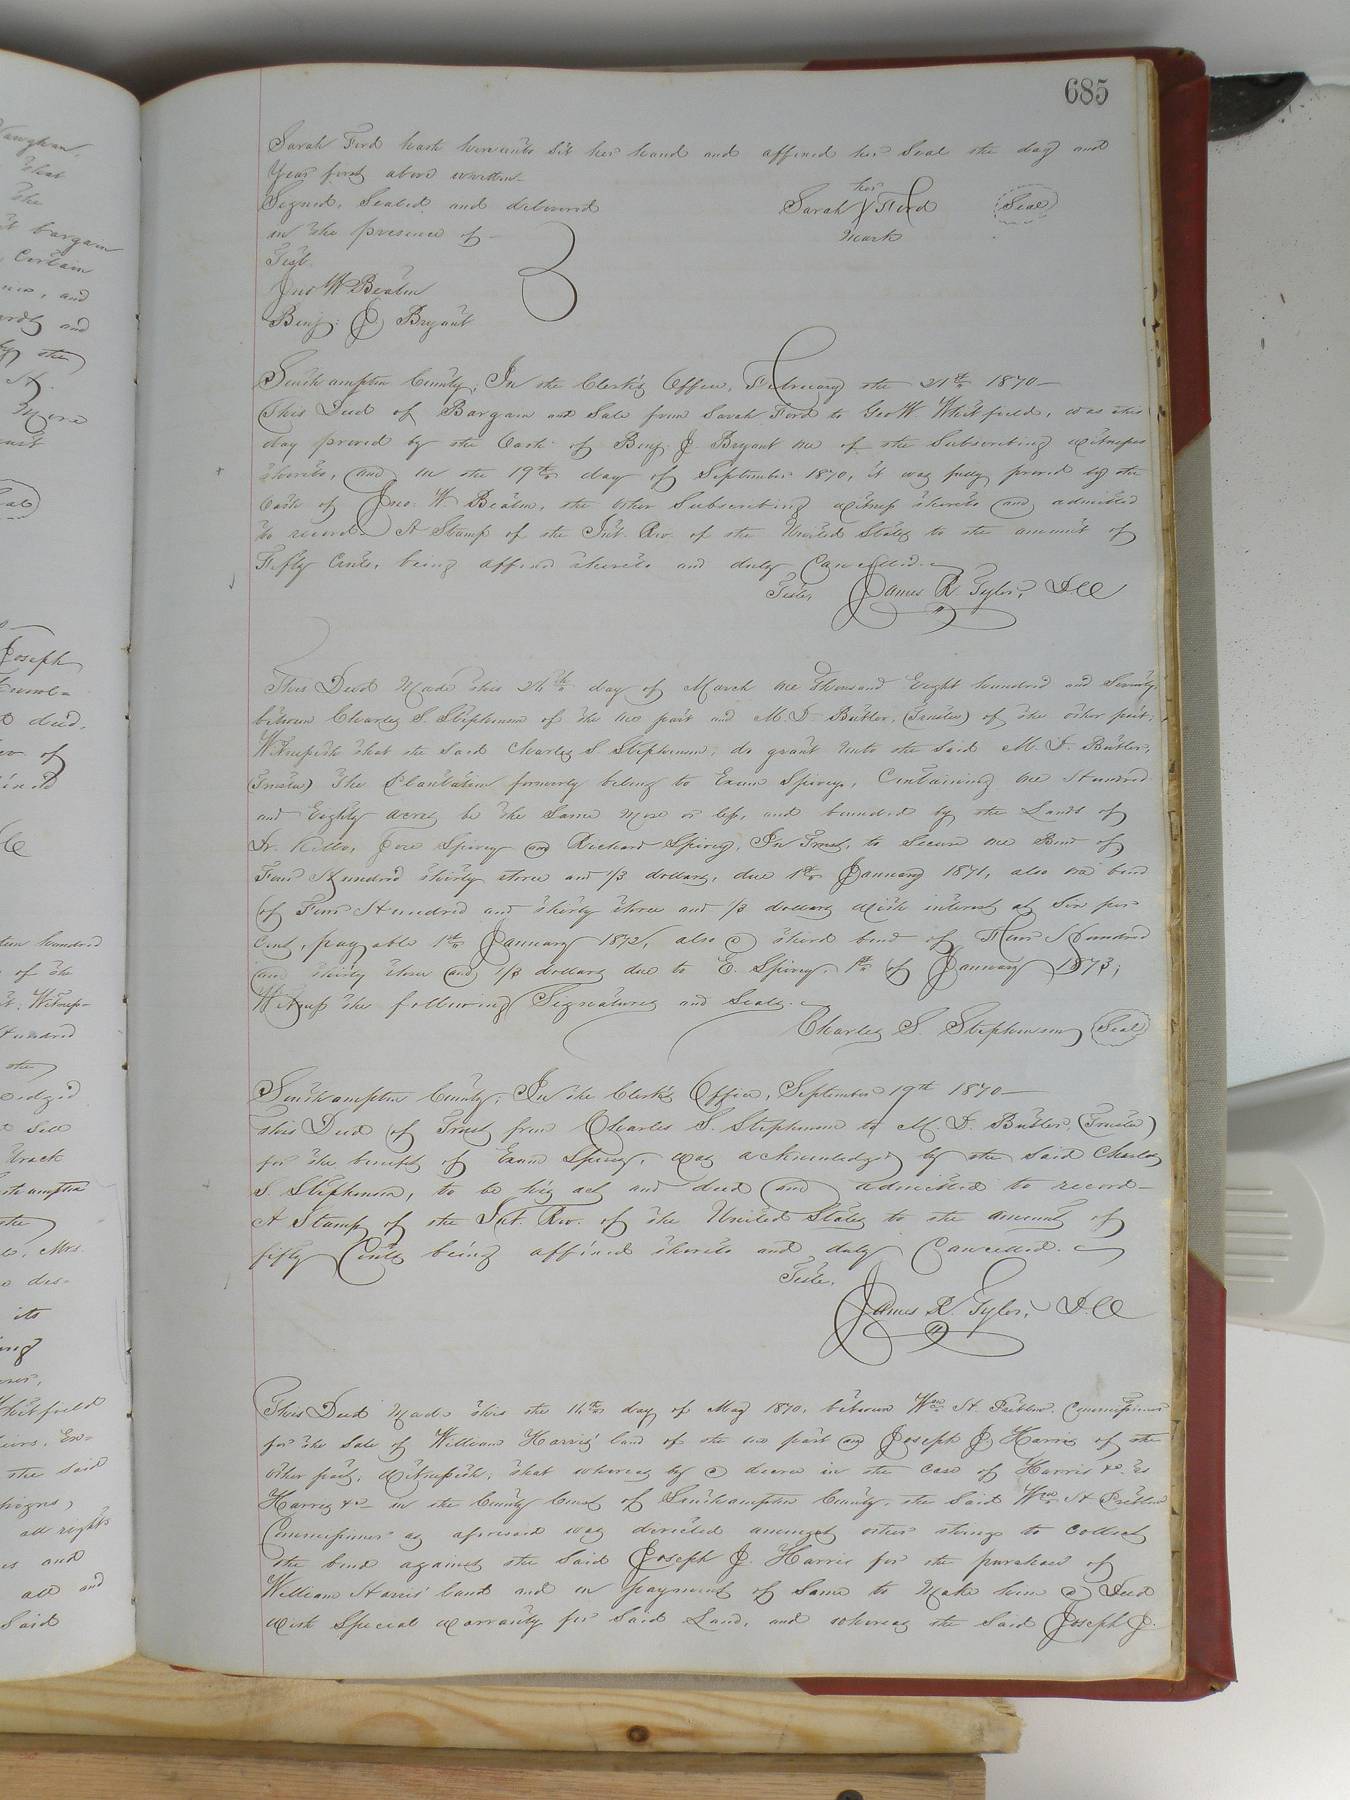 685
Sarah Ford hath hereunto set her hand and affixed her Seal the day and
Year first above written
Signed, Sealed and delivered
in the presence of
Test.
Jno W Beaton
Benj: J Bryant
her
Sarah X Ford Seal
mark
Southampton County; In the Clerk's Office, February the 21st 1870
This Deed of Bargain and Sale from Sarah Ford to Geo W Whitfield, was this
day proved by the Oath of Benj: J Bryant one of the Subscribing witnesses
thereto, and on the 19th day of September 1870, it was fully proved by the
Oath of Jno. W. Beaton, the other Subscribing witness thereto and admitted
to record A Stamp of the Int. Rev. of the United States to the amount of
Fifty Cents, being affixed thereto and duly Cancelled.
Teste, James R. Tyler, D.C.C
This Deed Made this day of March one thousand Eight hundred and Seventy
between Charles S. Stephenson of the one part and M. D. Butler, (Trustee) of the other part,
Witnesseth that the said Charles S. Stephenson, do grant unto the said M. D. Butler,
(Trustee) the Plantation formerly belong to Exum Spivey, Containing one Hundred
and Eighty acres be the same more or less, and bounded by the Lands of
Spivey and Richard Spivey, In Trust, to secure one Bond of
Four Hundred thirty three and 1/3 dollars, due 1st January 1871, also one bond
of Four Hundred and thirty three and 1/3 dollars with interest at Six per
Cent, payable 1st January 1872, also a third bond of Four Hundred
and thirty three and 1/3 dollars due to E. Spivey, 1st of January 1873;
Witness the following Signatures and Seals.
Charles S. Stephenson Seal
Southampton County; In the Clerk's Office, September 19th 1870
This Deed of Trust from Charles S. Stephenson to M. D. Butler, (Trustee)
for the benefit of Exum Spivey, was acknowledged by the said Charles
S. Stephenson, to be his act and deed and admitted to record
A Stamp of the Int. Rev. of the United States to the amount of
fifty Cents being affixed thereto and duly Cancelled.
Teste,
James R. Tyler, D.C.C
This Deed Made this the day of May 1870, between Wm H. Commissioner
for the Sale of William Harris' land of the one part and Joseph J Harris of the
other part, Witnesseth, that whereas by a decree in the case of Harris &c. vs
Harris &c in the County Court of Southampton County, the Said Wm H
Commissioner as aforesaid was directed amongst other things to collect
the bond against the Said Joseph J. Harris for the purchase of
William Harris' land and on payment of Same to Make him a Deed
with Special warranty for Said Land, and whereas the Said Joseph J.